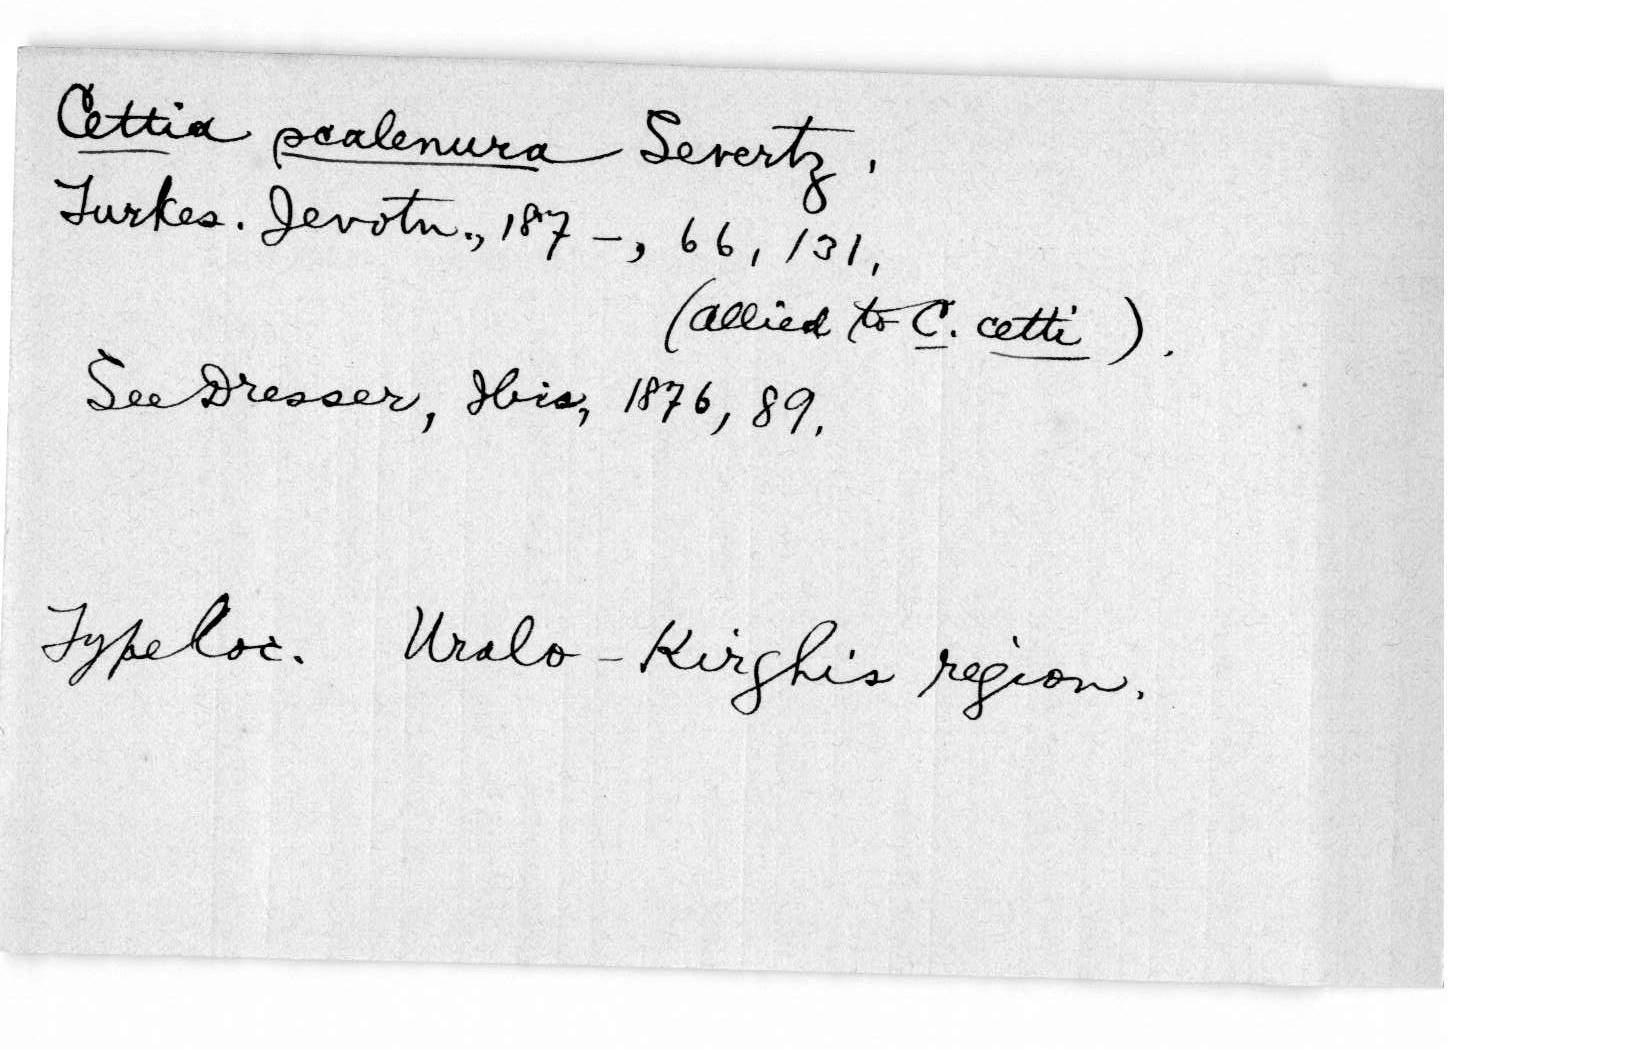 Cettia scalenura Severtz.
Turkes. Jevotn., 187-, 66, 131,
(allied to C. cetti).
See Dresser, Ibis, 1876, 89.
Type loc. Uralo-Kirghis region.